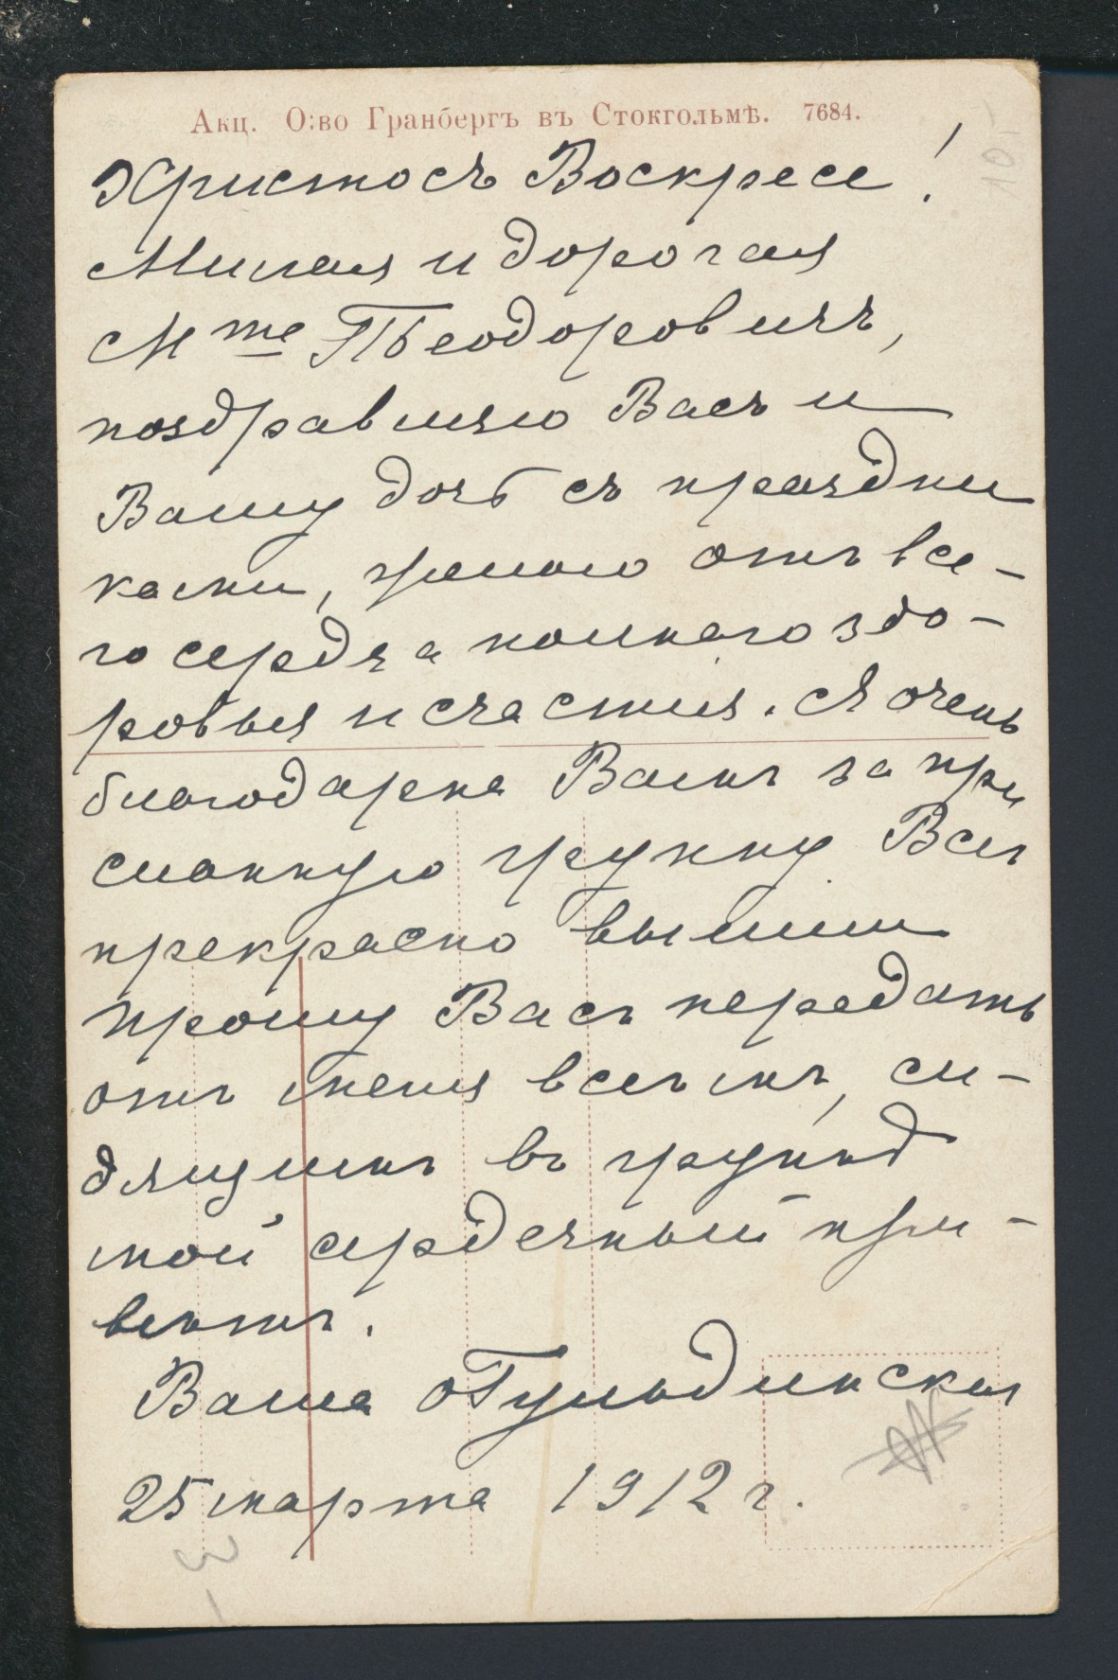 Акц. О:во Гранбергъ въ Стокгольмѣ. 7684.
Христосъ Воскресе!
Милая и дорогая
Mme Теодоровичъ,
поздравляю Васъ и
Вашу дочь съ праздни
ками, желаю отъ все-
го сердца полнаго здо-
ровья и счастия. Я очень
благодарна Вамъ за при
сланную группу Всѣ
прекрасно вышли
Прошу Васъ передать
отъ меня всѣмъ, си-
дящимъ въ группѣ
мой сердечный при-
вѣтъ.
Ваша Гульдинская
25 марта 1912 г.